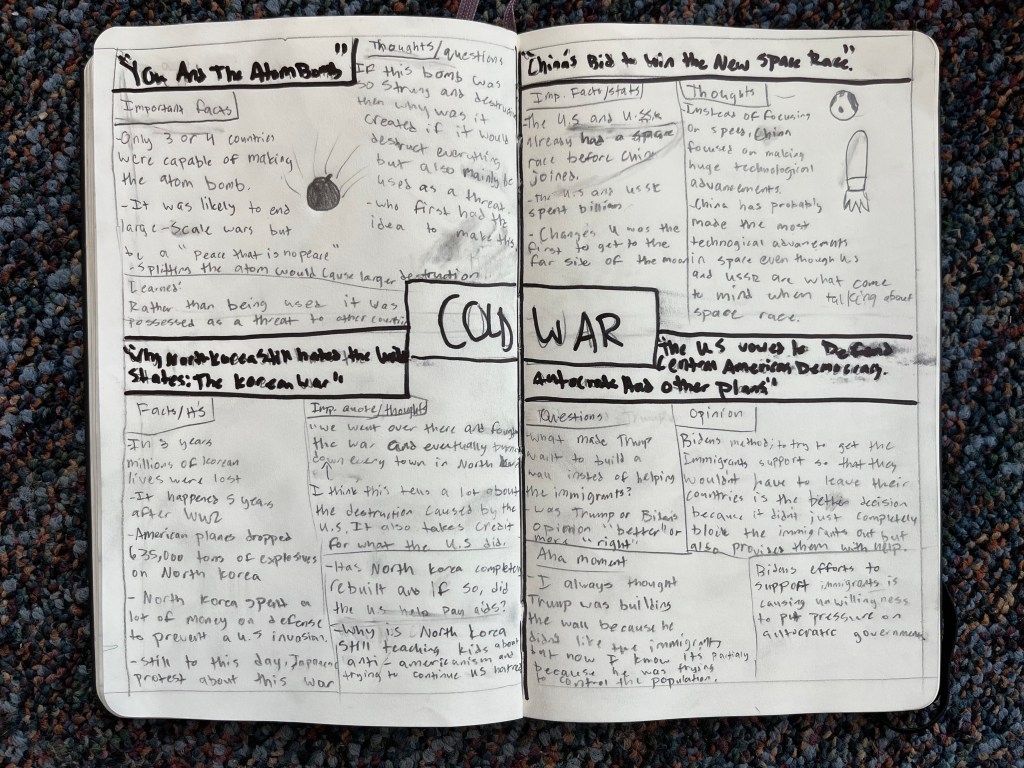 "You And The Atom Bomb"
Important facts
-Only 3 or 4 countries
were capable of making
the atom bomb.
-It was likely to end
large-scale wars but
by a "Peace that is no peace"
-Splitting the atom would cause larger destruction
I earned:
Rather than being used it was
possessed as a threat to other countries
Thoughts/questions
If this bomb was
so strong and destructive
then why was it
created if it would
destruct everything
but also mainly be
used as a threat.
-who first had the
idea to make this
"China's Bid to Win the New Space Race."
Imp. Facts/stats
-The U.S and U.SSR
already had a space
race before China
joined.
-The U.S and USSR
spent billion
-Changes 4 was the
first to get to the
far side of the moon
Thoughts
-Instead of focusing
or speed, China
focused on making
huge technological
advancements.
-China has probably
made the most
technogical advancements
in space even though U.S
and USSR are what come
to mind when talking about
space race.
COLD WAR
"Why North Korea Still hated the United
States: The Korean War"
Facts/#'s
In 3 years
millions of korean
lives were lost
-It happened 5 years
after WW2
-American planes dropped
635,000 tons of explosives
on North Korea
-North Korea spent a
lot of money on defense
to prevent a U.S invasion.
-still to this day,
protest about this war
Imp. quote/thoughts
"we went over there and fought
the war and eventually burned
down every town in North
I think this tells a lot about
the destruction caused by the
U.S. It also takes credit
for what the U.S did.
-Has North Korea completely
rebuilt and if so, did
the US help pay aids?
-Why is North Korea
still teaching kids about
anti-americanism and
trying to continue US hatred
"The US vowed to Defend
Central American Democracy.
Autocrats Had other plans"
Questions
-What made Trump
want to build a
wall insted of helping
the immigrants?
-was Trump or Biden's
opinion "better" or
more "right"
Opinion
Bidens method to try to get the
Immigrants support so that they
wouldnt have to leave their
countries is the better decision
because it didn't just completely
block the immigrants out but
also provides them with help.
Aha moment
-I always thought
Trump was building
the wall because he
didn't like the immigrants
but now I know its partialy
because he was trying
to control the population.
Bidens efforts to
support immigrants is
causing unwillingness
to put pressure on
autocratic government